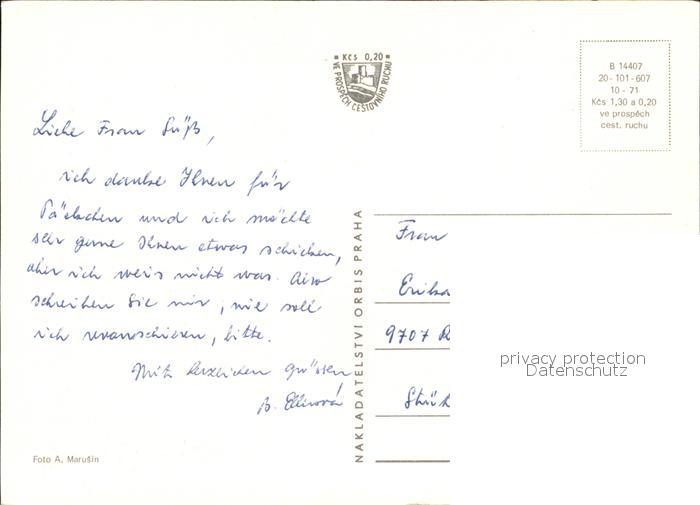 Kčs 0,20
VE PROSPĚCH CESTOVNÍHO RUCHU
B 14407
20-101-607
10 - 71
Kčs 1,30 a 0,20
ve prospěch
cest. ruchu
Liebe Frau Süß,
ich danke Ihnen für
Päckchen und ich möchte
sehr gerne Ihnen etwas schicken,
aber ich weis nicht was. Also
schreiben Sie mir, wie soll
ich revanschieren, bitte.
Mit herzlichen Grüssen
B.
Foto A. Marušin
NAKLADATELSTVÍ ORBIS PRAHA
Frau
Erika
9707
privacy protection
Datenschutz